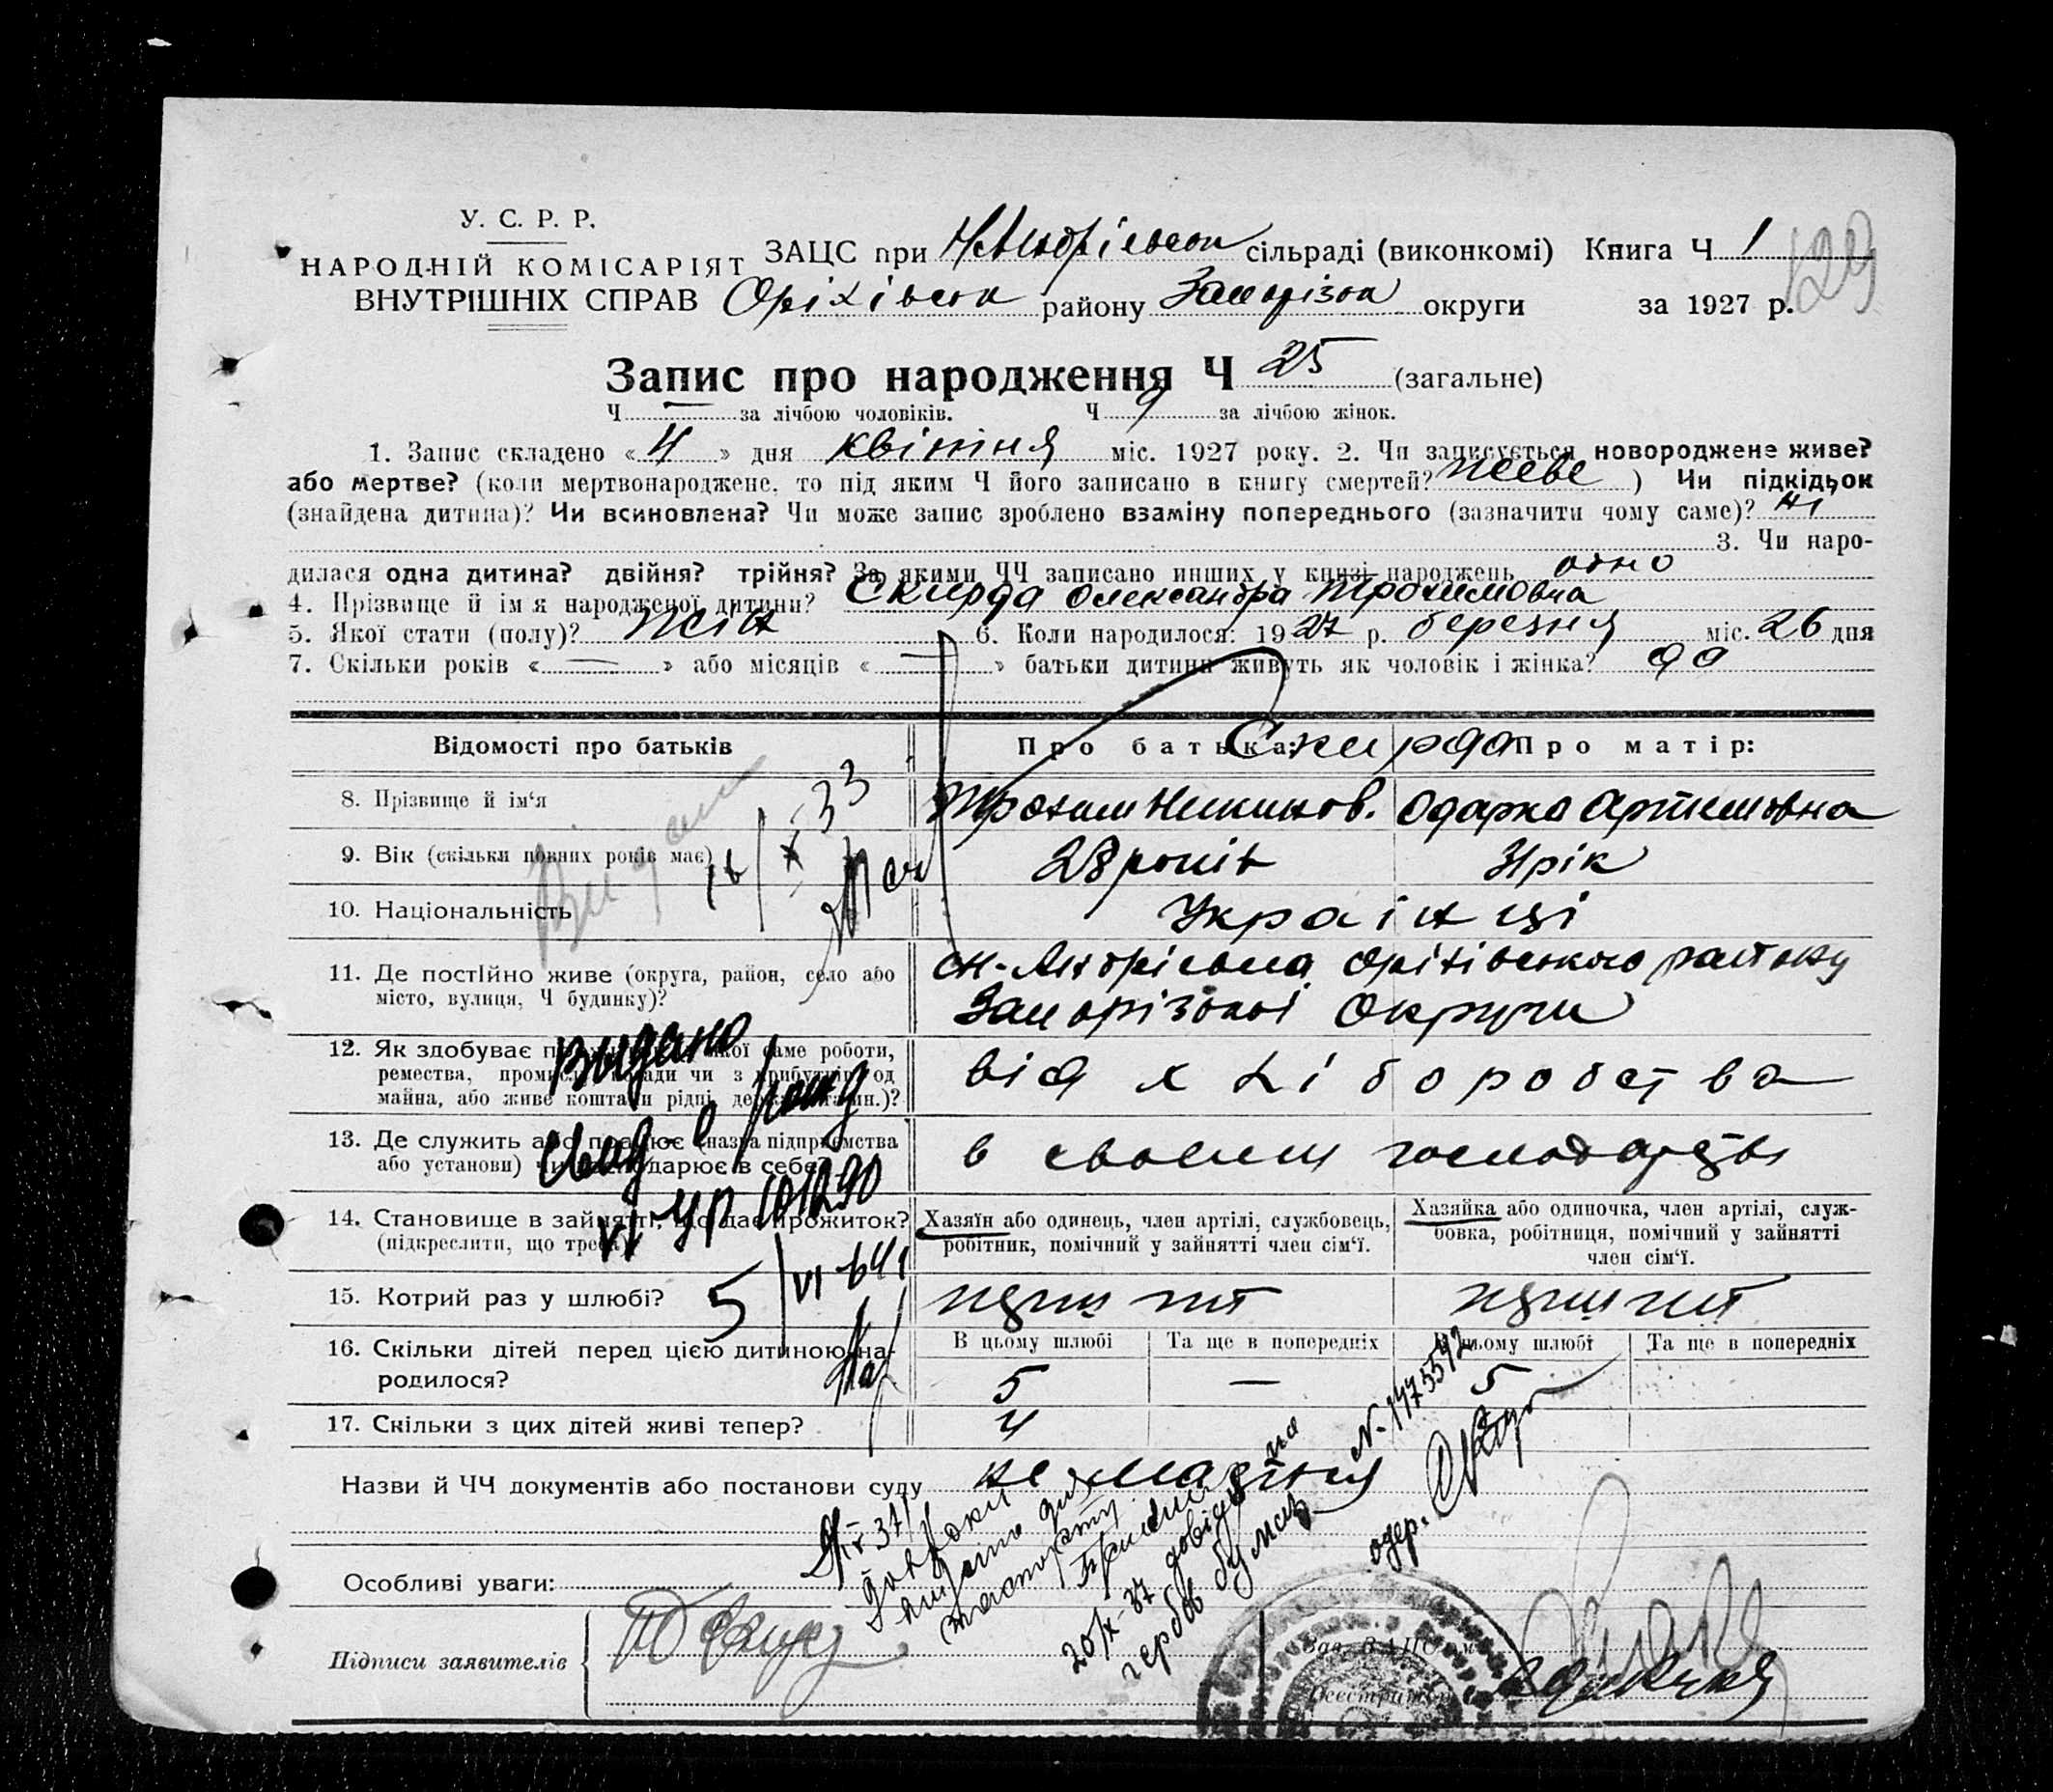 У. С. Р. Р.
НАРОДНІЙ КОМІСАРІЯТ
ВНУТРІШНІХ СПРАВ
ЗАЦС при сільраді (виконкомі) Книга Ч 1
129
Оріхівськ району Запорізьк округи за 1927 р.
Запис про народження Ч 25 (загальне)
Ч — за лічбою чоловіків. Ч 9 за лічбою жінок.
1. Запис складено « 4 » дня квітня міс. 1927 року. 2. Чи записується новороджене живе?
або мертве? (коли мертвонароджене, то під яким Ч його записано в книгу смертей? живе ) Чи підкідьок
(знайдена дитина)? Чи всиновлена? Чи може запис зроблено взаміну попереднього (зазначити чому саме)? ні
3. Чи наро-
дилася одна дитина? двійня? трійня? За якими ЧЧ записано инших у книзі народжень одно
4. Прізвище й ім'я народженої дитини? Скирда Олександра Трохимовна
5. Якої стати (полу)? жін 6. Коли народилося: 1927 р. березня міс. 26 дня
7. Скільки років « — » або місяців « — » батьки дитини живуть як чоловік і жінка? да
Відомості про батьків
Про батька: Про матір:
Скирда
8. Прізвище й ім'я
Трохим Никинов. Одарка Артемовна
9. Вік (скільки повних років має)
28 років 31 рік
10. Національність
Українці
11. Де постійно живе (округа, район, село або
місто, вулиця, Ч будинку)?
Оріхівського району
Запорізької Округи
12. Як здобуває саме роботи,
ремества, чи з прибутків од
майна, або живе коштами рідні,
від хліборобства
13. Де служить або працює (назва підприємства
або установи) чи господарює в себе?
в своєму господарстві
14. Становище в зайнятті, що дає прожиток?
(підкреслити, що треба)
Хазяїн або одинець, член артілі, службовець,
робітник, помічний у зайнятті член сім'ї.
Хазяйка або одиночка, член артілі, служ-
бовка, робітниця, помічний у зайнятті
член сім'ї.
15. Котрий раз у шлюбі?
16. Скільки дітей перед цією дитиною на-
родилося?
В цьому шлюбі Та ще в попередніх В цьому шлюбі Та ще в попередніх
5 — 5
17. Скільки з цих дітей живі тепер?
4
Назви й ЧЧ документів або постанови суду
Особливі уваги:
Підписи заявителів
Видано
свід о рожд
5/VI
20/X-37 довідка на
гербов бумаз N. 1475542
одер.
Зав. ЗАЦС'ом
Реєстратор